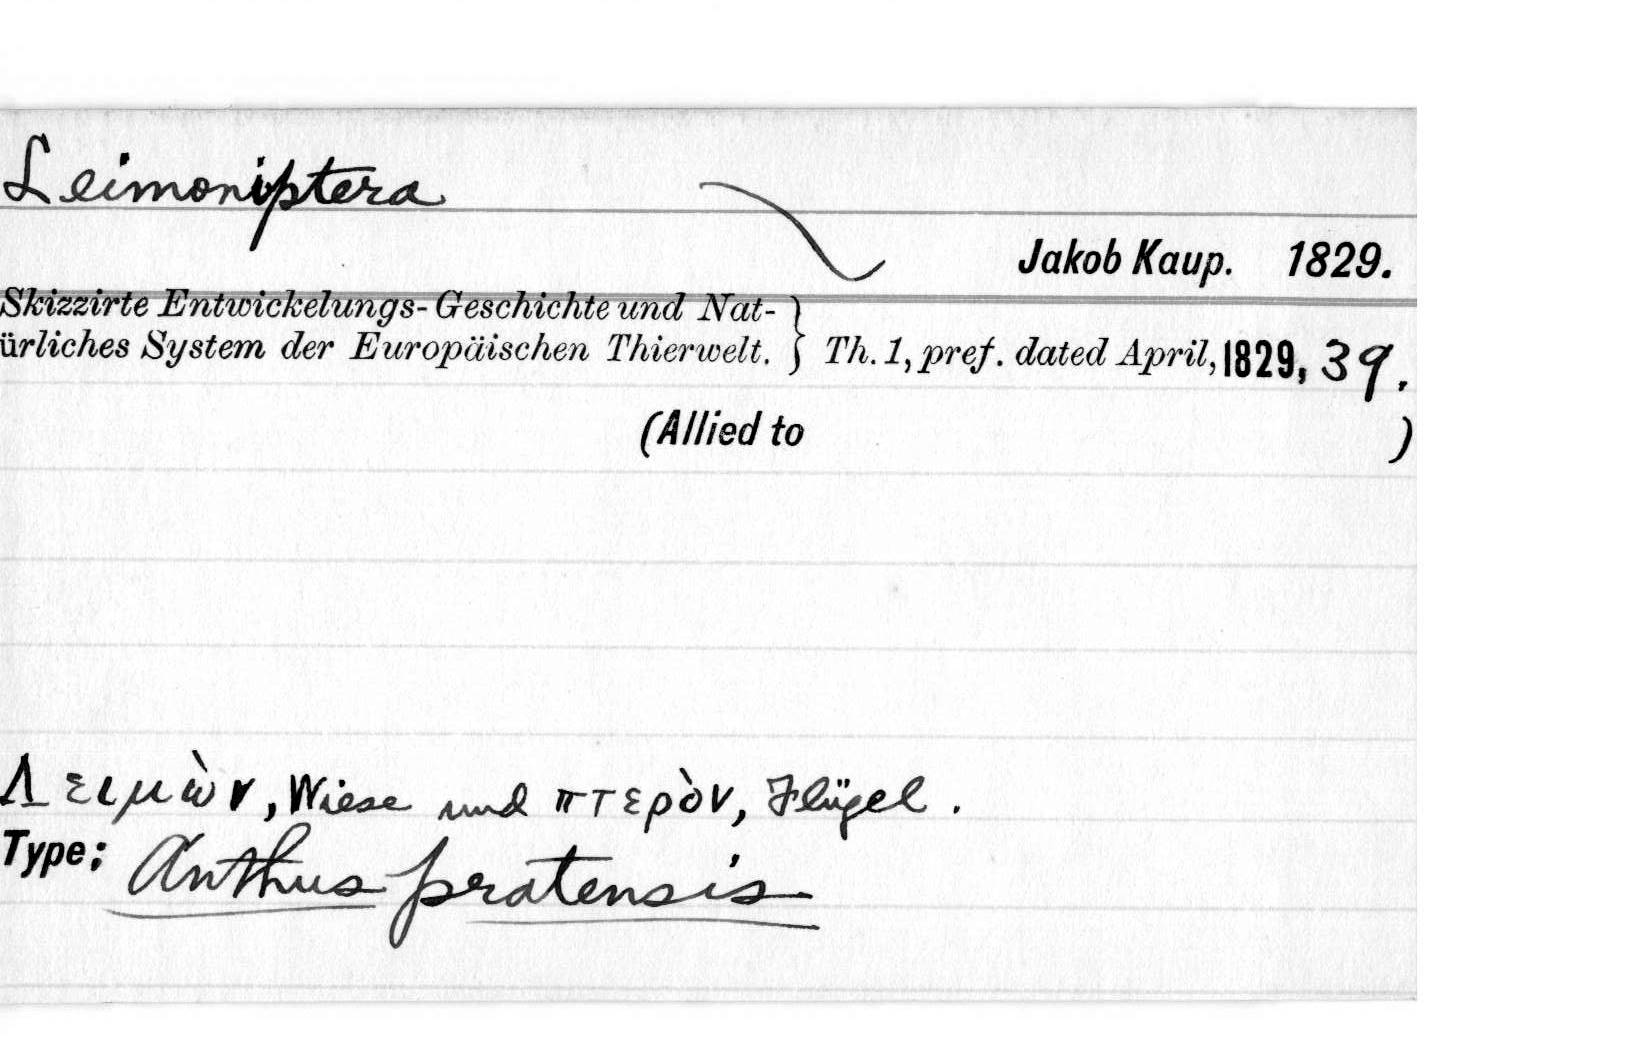 Leimoniptera
Jakob Kaup. 1829.
Skizzirte Entwickelungs-Geschichte und Nat-
ürliches System der Europäischen Thierwelt. } Th. 1, pref. dated April, 1829, 39.
(Allied to )
Λειμὼν, Wiese und πτερὸν, Flügel.
Type: Anthus pratensis